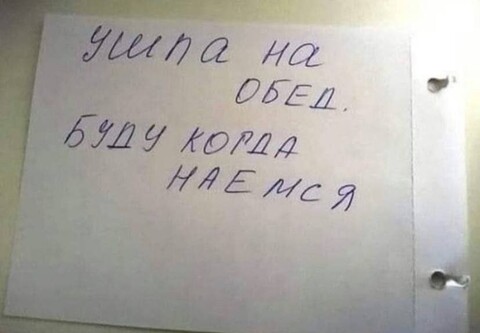 УШПА НА
ОБЕД.
БУДУ КОРДА
НАЕМСЯ